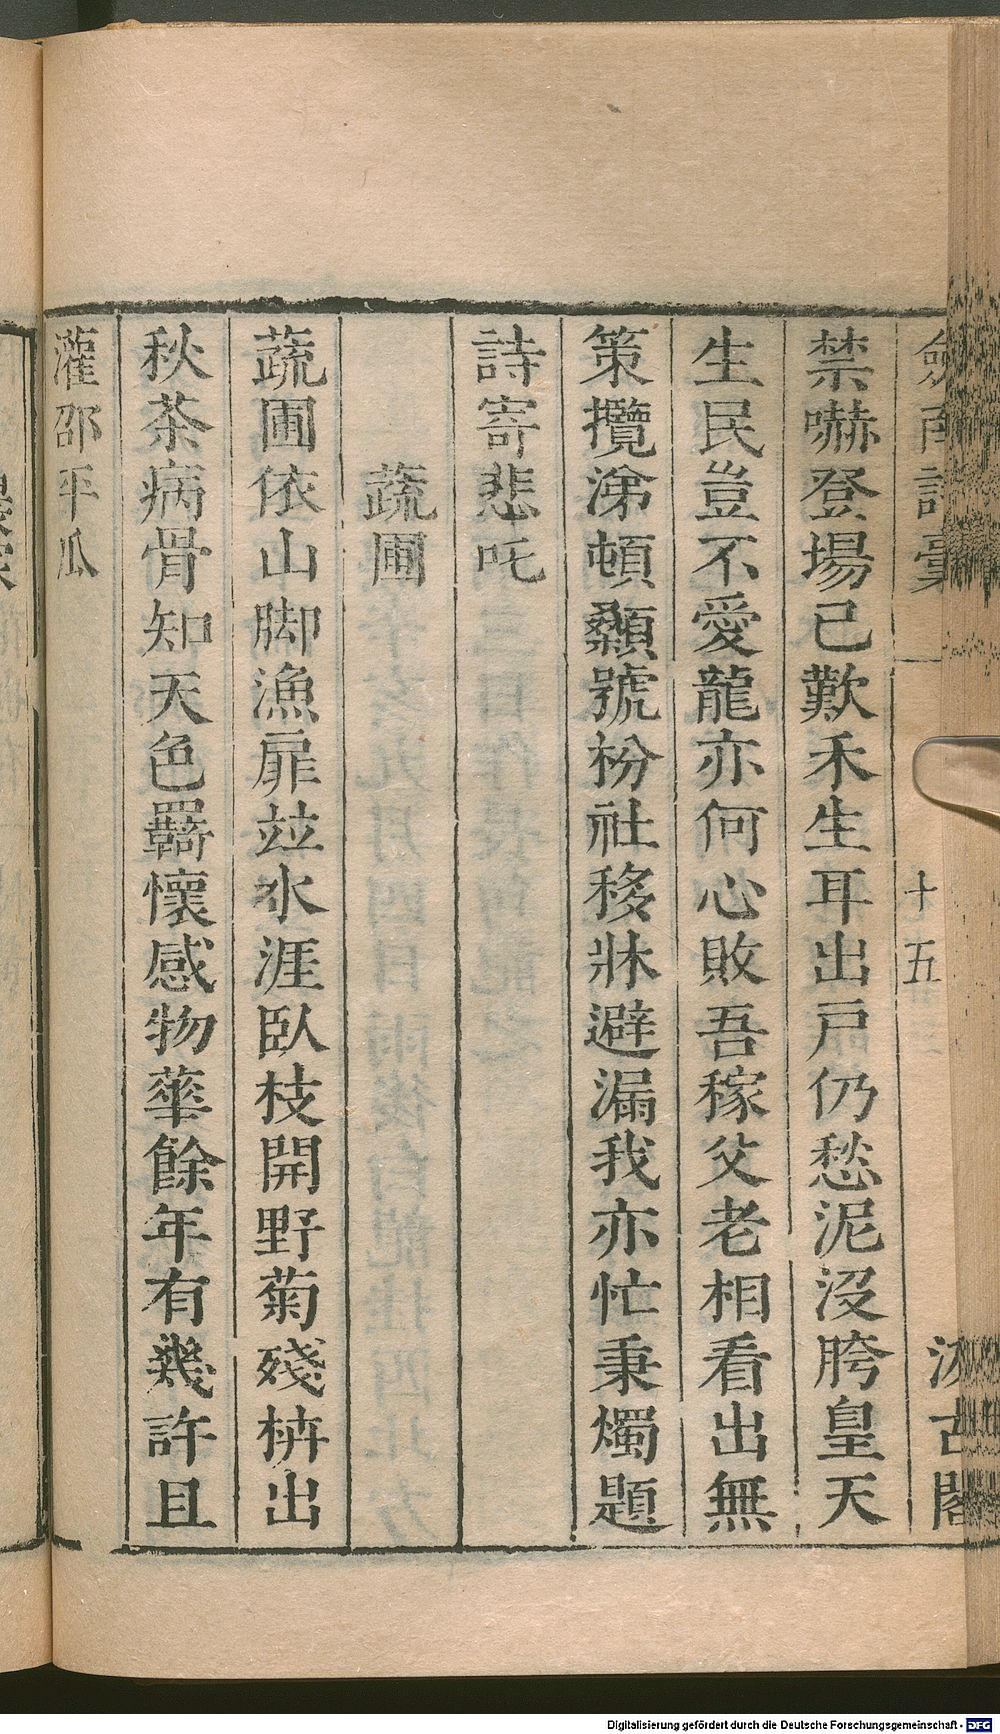 劔南詩藁
十五
汲古閣
禁嚇登場已歎禾生耳出戸仍愁泥没胯皇天
生民豈不愛龍亦何心敗吾稼父老相看出無
策攬涕頓顙號枌社移牀避漏我亦忙秉燭題
詩寄悲吒
蔬圃
蔬圃依山脚漁扉竝水涯臥枝開野菊殘枿出
秋茶病骨知天色羇懷感物華餘年有幾許且
灌邵平瓜
Digitalisierung gefördert durch die Deutsche Forschungsgemeinschaft - DFG